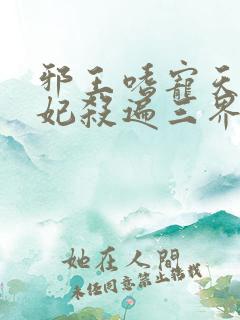 邪王嗜寵天
妃殺遍三界
她在人間
未经同意禁止转载